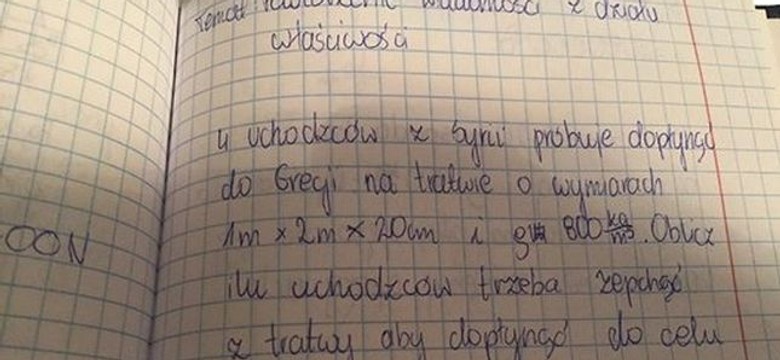 Temat wiadomości z działu
właściwości
4 uchodzców z Syrii próbuje dopłynąć
do Grecji na tratwie o wymiarach
OON
1m x 2m x 20cm i 800 kg/m³. Oblicz
ilu uchodzców trzeba zepchąć
z tratwy aby dopłynąć do celu